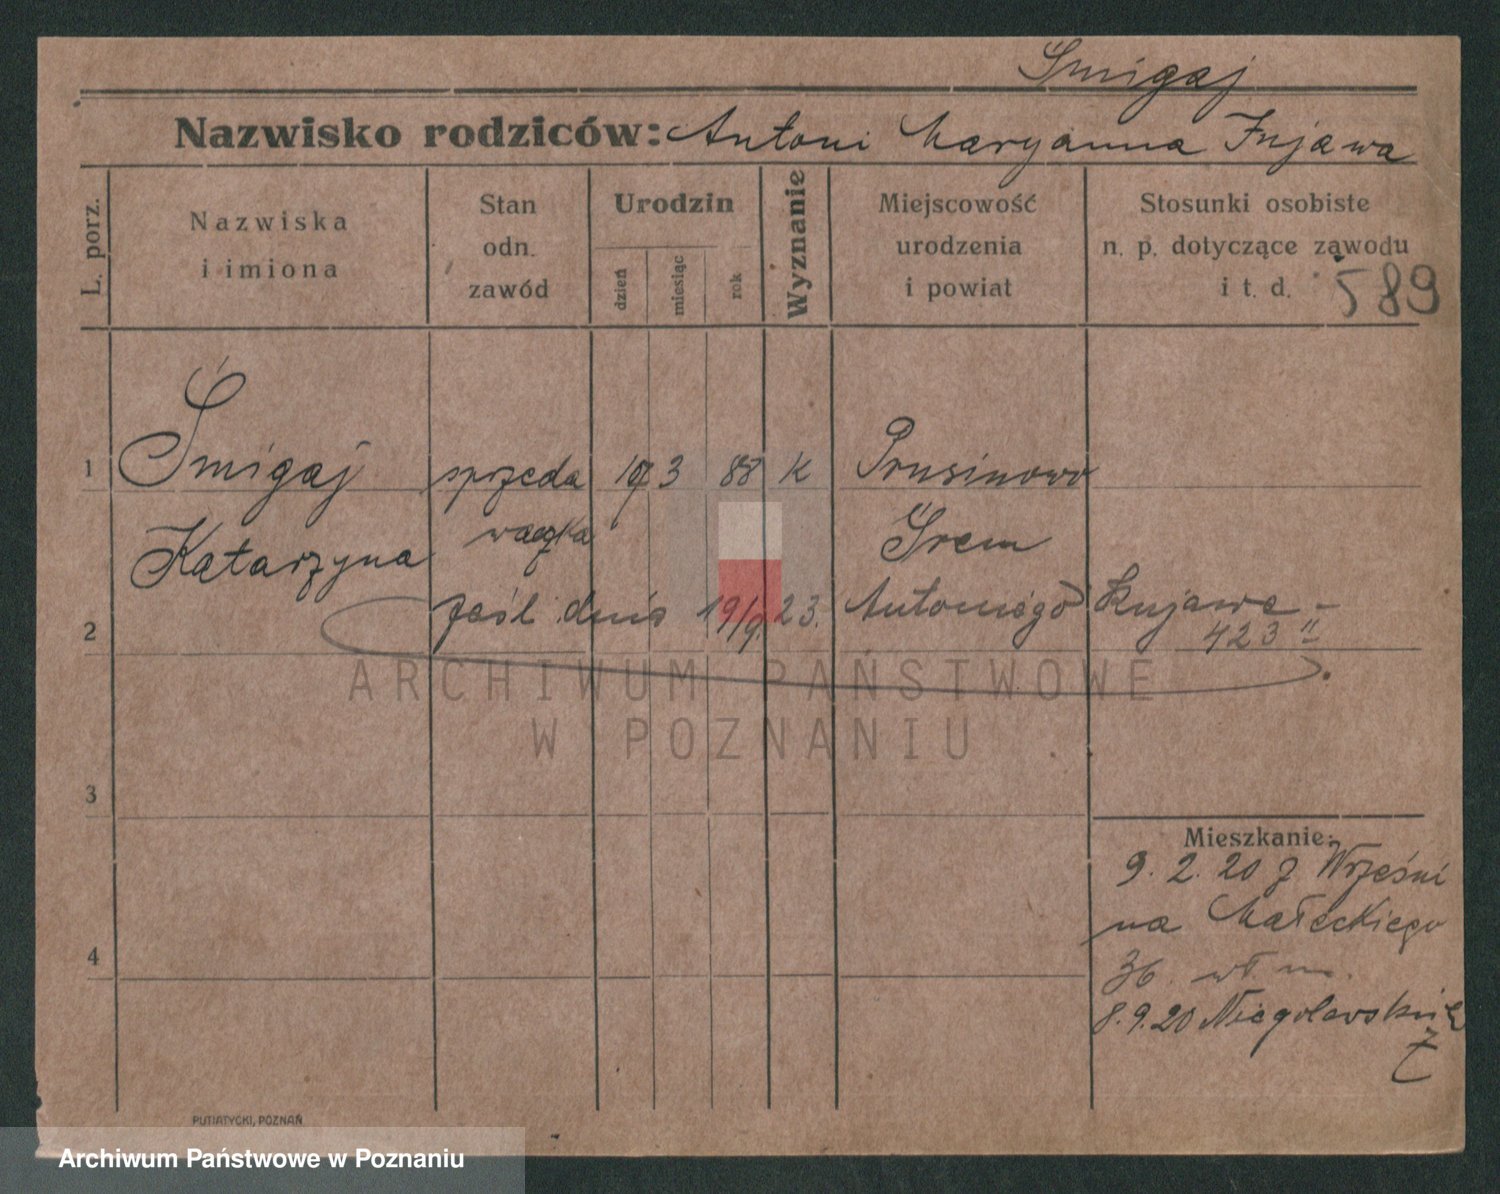 Śmigaj
Nazwisko rodziców: Antoni Maryanna Kujawa
L. porz.
Nazwiska
i imiona
Stan
odn.
zawód
Urodzin
dzień
miesiąc
rok
Wyznanie
Miejscowość
urodzenia
i powiat
Stosunki osobiste
n. p. dotyczące zawodu
i t. d.
589
1 Śmigaj sprzeda 3 88 k Prusinowo
Katarzyna waczka Śrem
2 zaśl. dnia 19/9.23. Antoniego Kujawę -
423 "
ARCHIWUM PAŃSTWOWE
W POZNANIU
3
Mieszkanie:
9.2.20 z Wrześni
na Małeckiego
4
36.
8.9.20 Niegolewskich
7
PUTIATYCKI, POZNAŃ
Archiwum Państwowe w Poznaniu